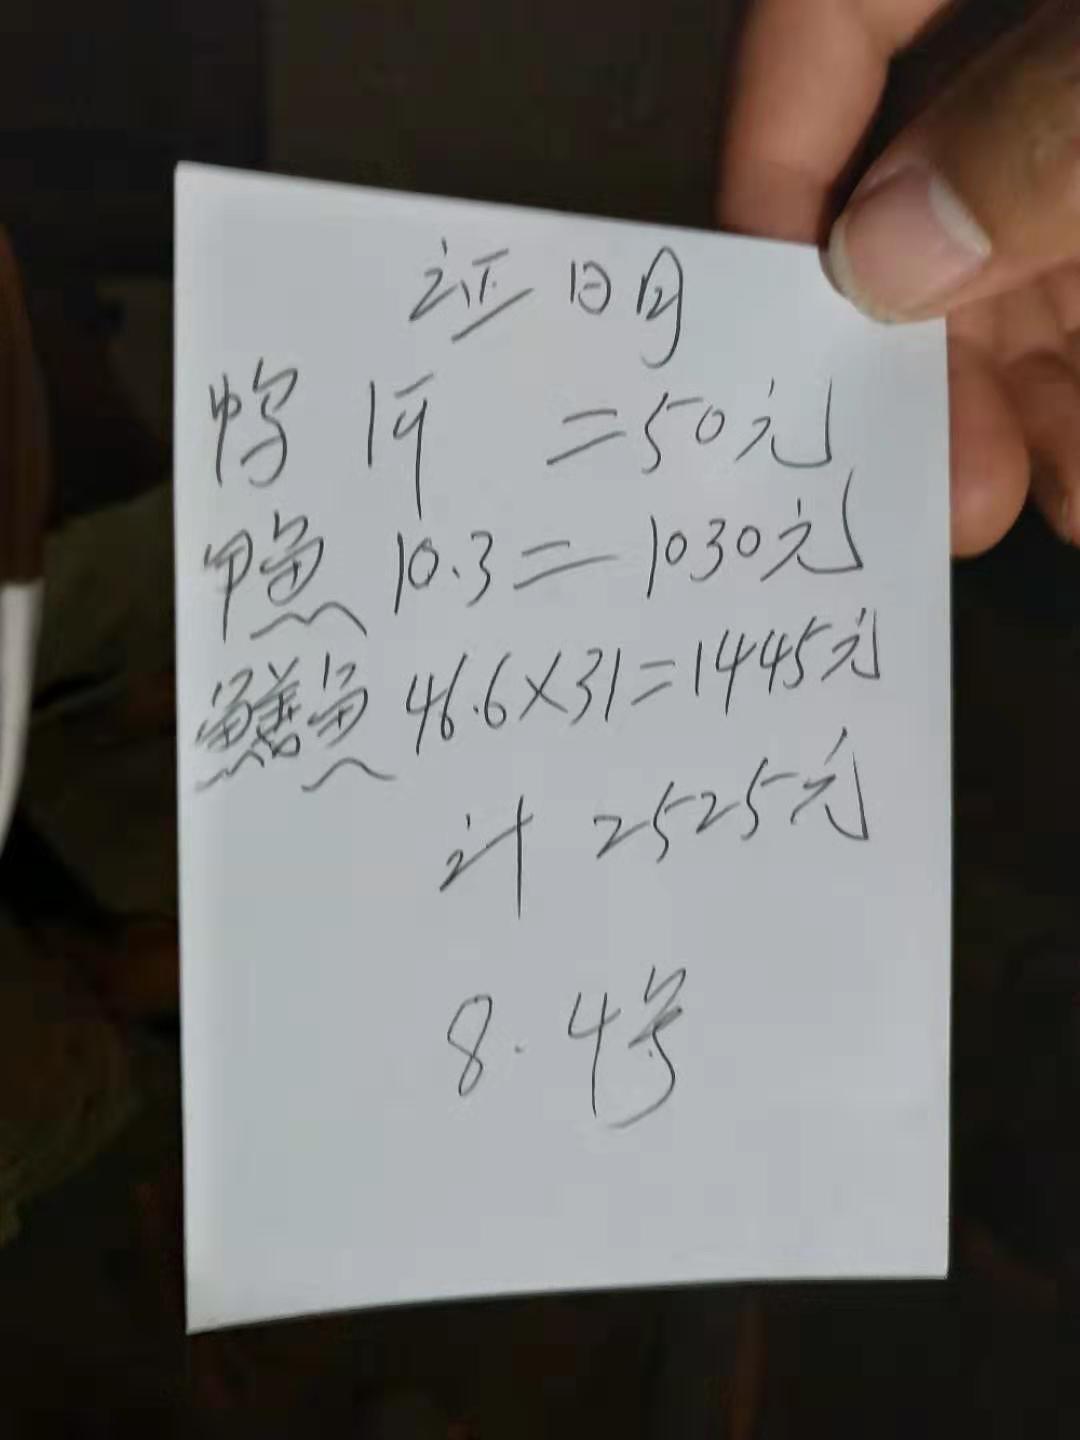 证明
鸭 1只 =50元
甲鱼 10.3=1030元
鳝鱼 46.6×31=1445元
计 2525元
8.4号